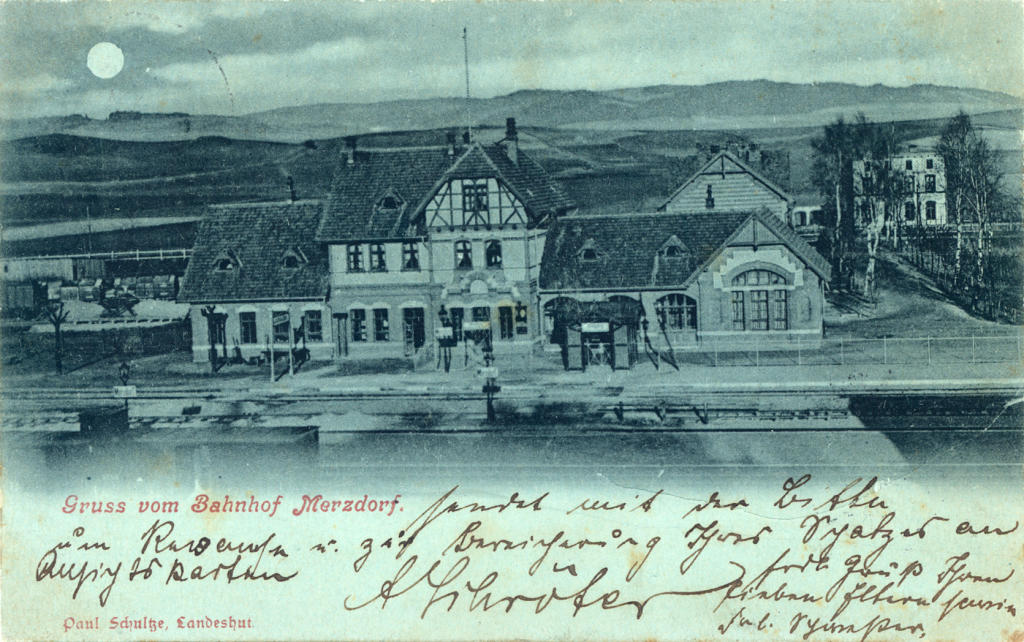 Gruss vom Bahnhof Merzdorf.
sendet mit der Bitte
um Revanche u. zur Bereicherung Ihres Schatzes an
Ansichtskarten
A Schröter
frdl. Gruß Ihren
lieben Eltern sowie
Frl. Schwester.
Paul Schultze, Landeshut.